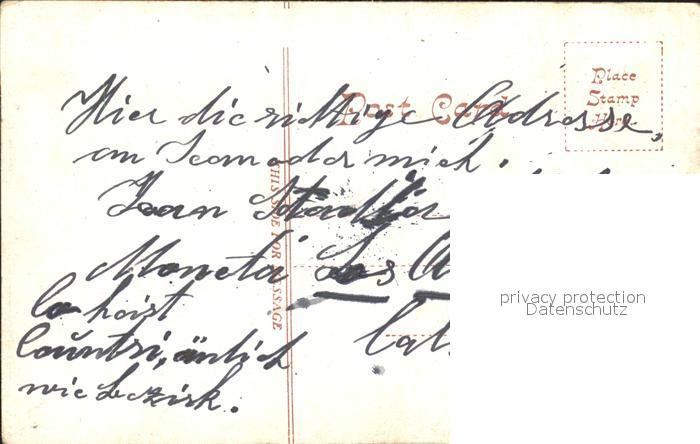 Place
Stamp
Here
Post Card
THIS SIDE FOR MESSAGE
Hier die richtige Adresse,
an Jean oder mich.
Jean
Moneta Los A
Cal.
Co heist
Countri, änlich
wie Bezirk.
privacy protection
Datenschutz